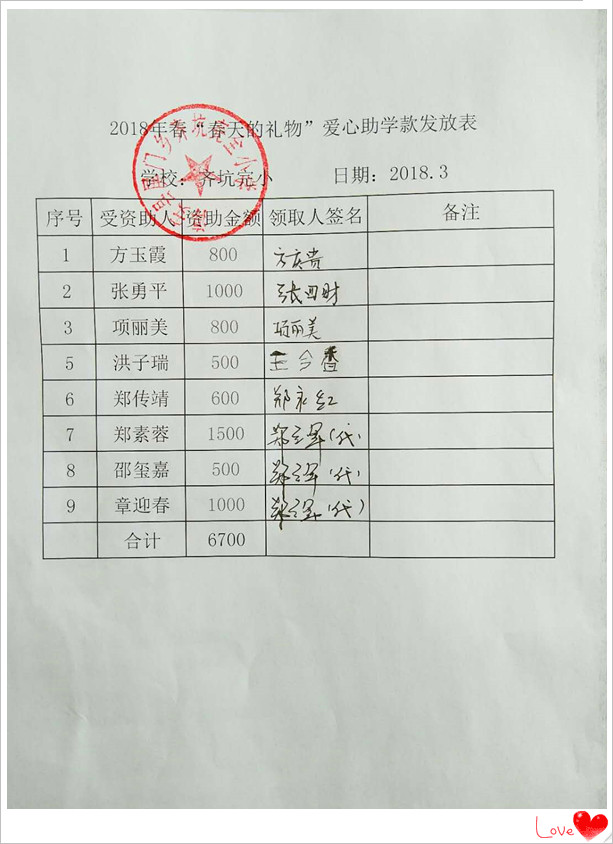 2018年春“春天的礼物”爱心助学款发放表
学校：齐坑完小 日期：2018.3
序号 受资助人 资助金额 领取人签名 备注
1 方玉霞 800
2 张勇平 1000 张四财
3 项丽美 800 项丽美
5 洪子瑞 500 王今香
6 郑传靖 600 郑永红
7 郑素蓉 1500 (代)
8 邵玺嘉 500 (代)
9 章迎春 1000 (代)
合计 6700
Love